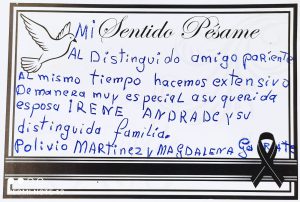 Mi Sentido Pésame
AL Distinguido amigo pariente
AL mismo tiempo hacemos extensivo
De manera muy especial a su querida
esposa IRENE ANDRADE y su
distinguida familia.
Polivio MARTINEZ y MAGDALENA